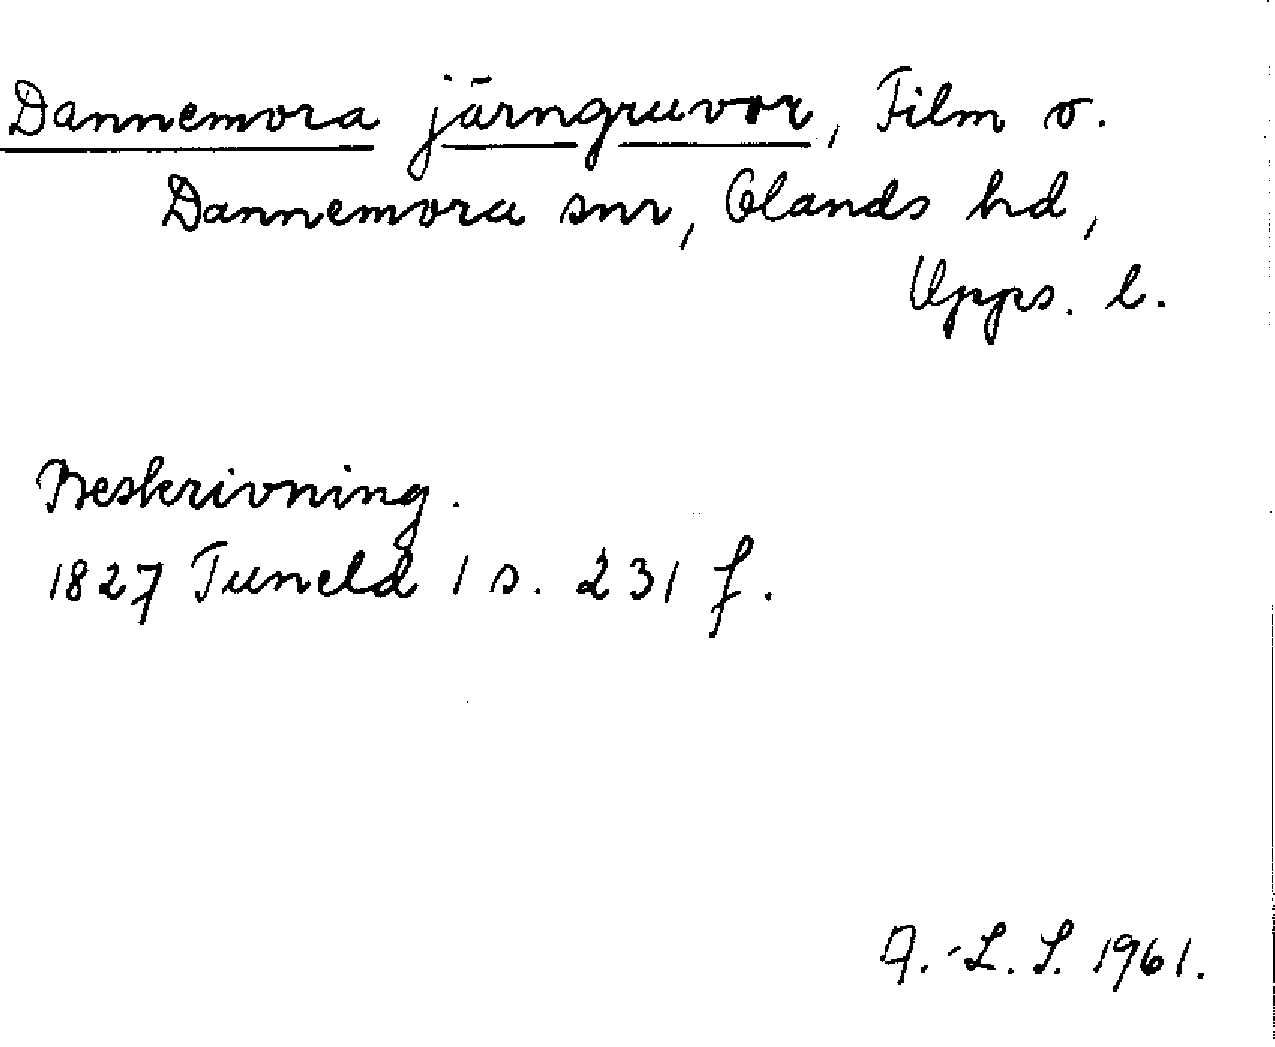 Dannemora järngruvor, Film o.
Dannemora snr, Olands hd,
Upps. l.
Beskrivning.
1827 Tuneld 1 s. 231 f.
A.-L. S. 1961.